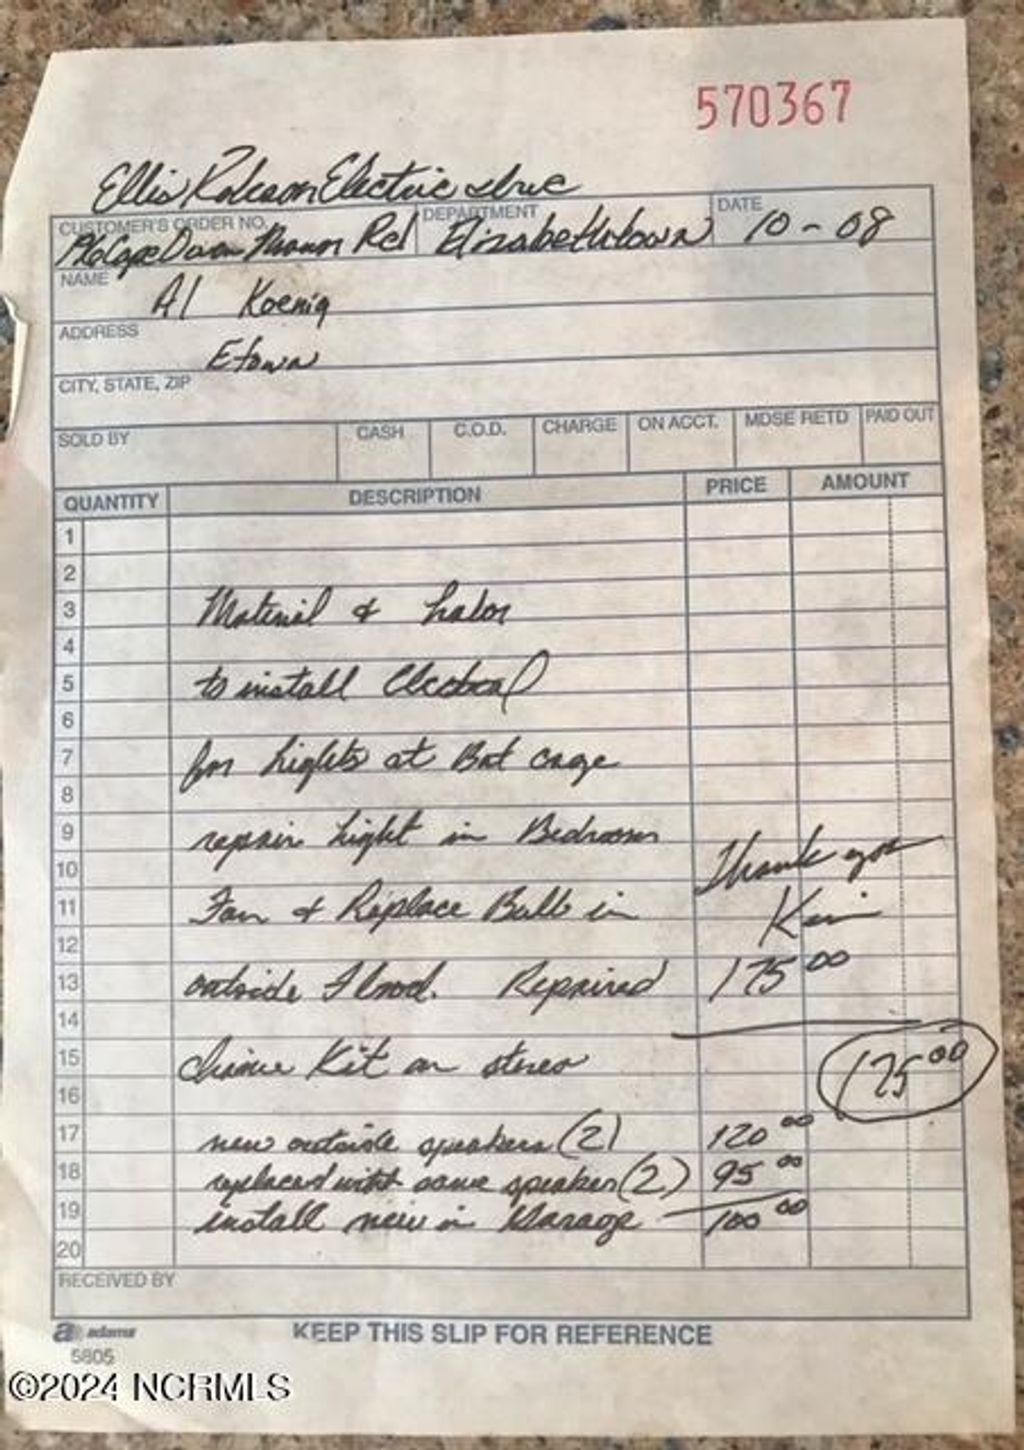 570367
Ellis Electric
CUSTOMER'S ORDER NO. DEPARTMENT DATE
Rd Elizabethtown 10-08
NAME
Al Koenig
ADDRESS
Etown
CITY, STATE, ZIP
SOLD BY CASH C.O.D. CHARGE ON ACCT. MDSE RETD PAID OUT
QUANTITY DESCRIPTION PRICE AMOUNT
1
2
3 Material & Labor
4
5 to install Electrical
6
7 for Lights at Bat cage
8
9 repair Light in Bedroom
10 Thank you
11 Fan & Replace Bulb in
12
13 outside Flood. Repaired 175 00
14
15 Kit on stereo 175 00
16
17 new outside speakers (2) 120 00
18 replaced with same speaker (2) 95 00
19 install new in Garage 100 00
20
RECEIVED BY
adams
5805
KEEP THIS SLIP FOR REFERENCE
©2024 NCRMLS